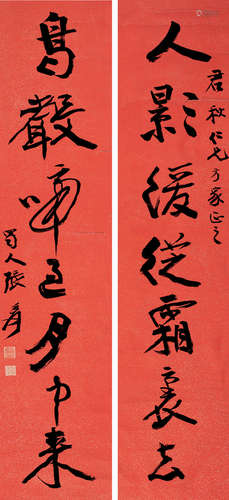 人影緩從霜裏去
君秋仁兄方家正之
鳥聲啼過月中来
蜀人張爰